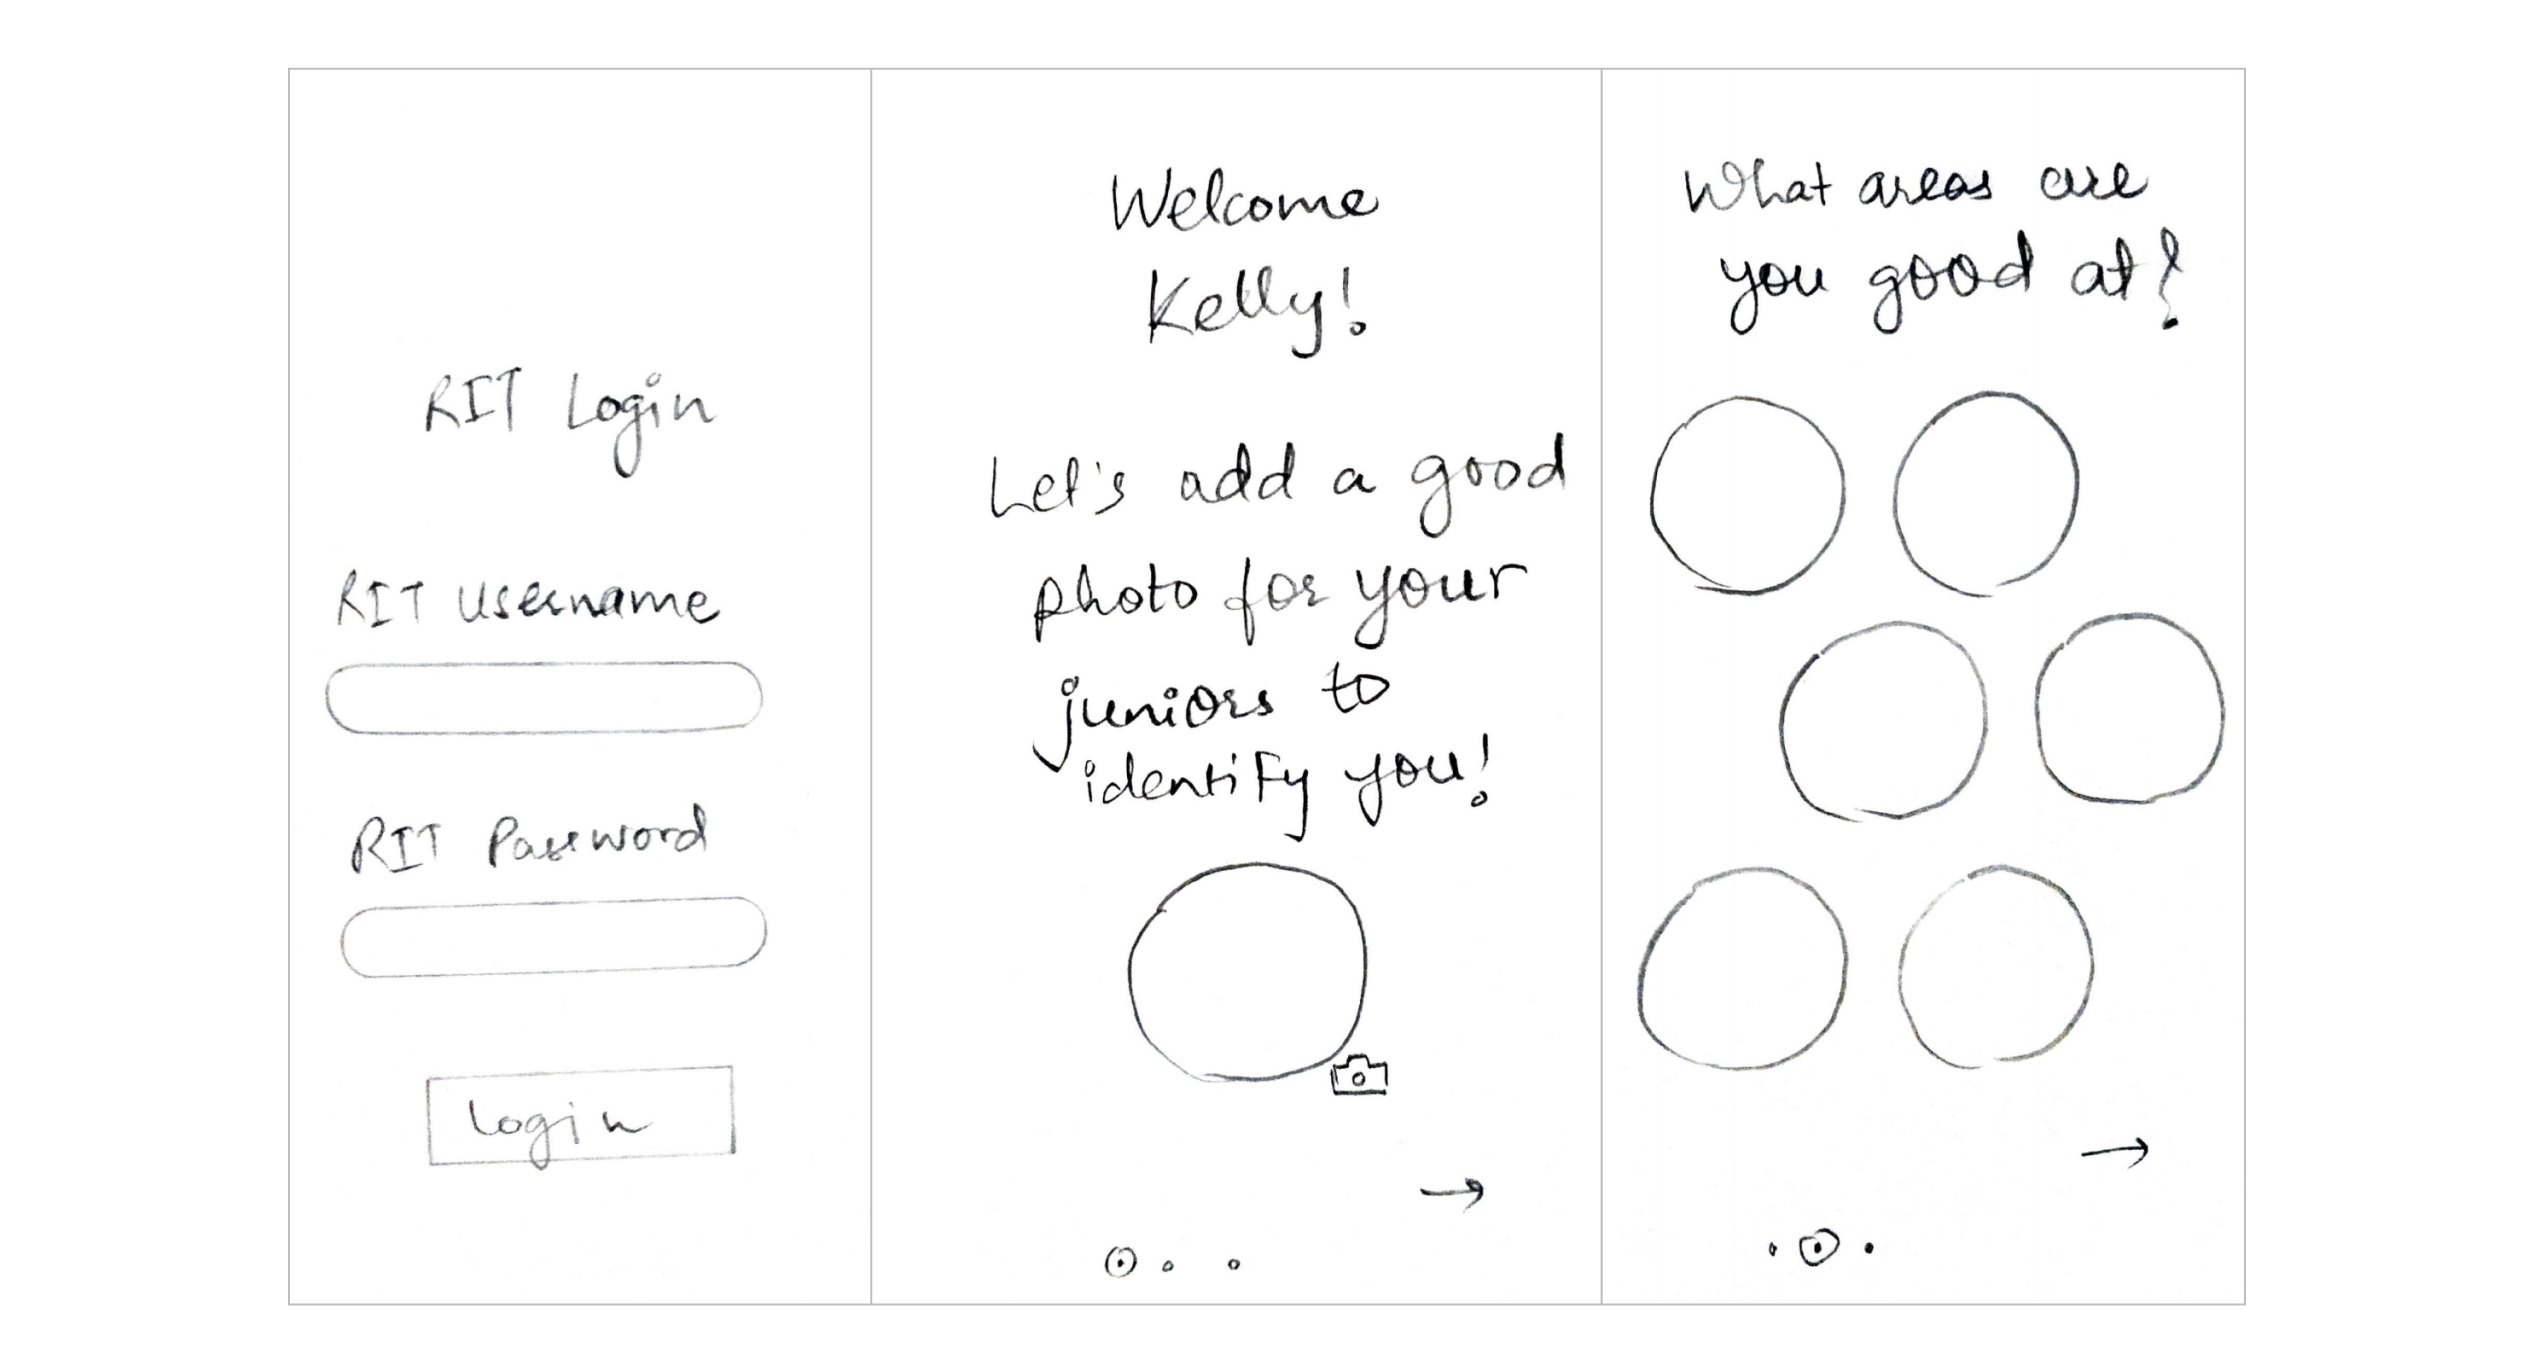 RIT Login
RIT Username
RIT Password
Login
Welcome
Kelly!
Let's add a good
photo for your
juniors to
identify you!
What areas are
you good at?